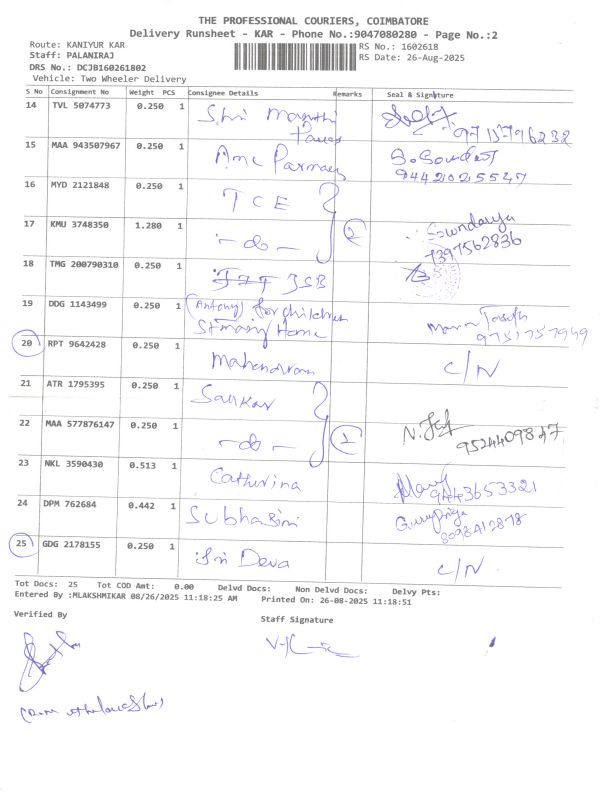 THE PROFESSIONAL COURIERS, COIMBATORE
Delivery Runsheet - KAR - Phone No.:9047080280 - Page No.:2
Route: KANIYUR KAR
RS No.: 1602618
Staff: PALANIRAJ
RS Date: 26-Aug-2025
DRS No.: DCJB160261802
Vehicle: Two Wheeler Delivery
S No Consignment No Weight PCS Consignee Details Remarks Seal & Signature
14 TVL 5074773 0.250 1 Shri
15 MAA 943507967 0.250 1 Amc 9442025547
16 MYD 2121848 0.250 1 TCE
17 KMU 3748350 1.280 1 -do- 2 Soundarya
7397562836
18 TMG 200790310 0.250 1 JSB
19 DDG 1143499 0.250 1 (Antony) for children
St mary Home
20 RPT 9642428 0.250 1 Mahendran C/N
21 ATR 1795395 0.250 1 Sankar
22 MAA 577876147 0.250 1 -do- 1 9524409847
23 NKL 3590430 0.513 1 Catherina 9443653321
24 DPM 762684 0.442 1 Subhasini Gurupriya
8098412878
25 GDG 2178155 0.250 1 Sri Deva C/N
Tot Docs: 25 Tot COD Amt: 0.00 Delvd Docs: Non Delvd Docs: Delvy Pts:
Entered By :MLAKSHMIKAR 08/26/2025 11:18:25 AM Printed On: 26-08-2025 11:18:51
Verified By
Staff Signature